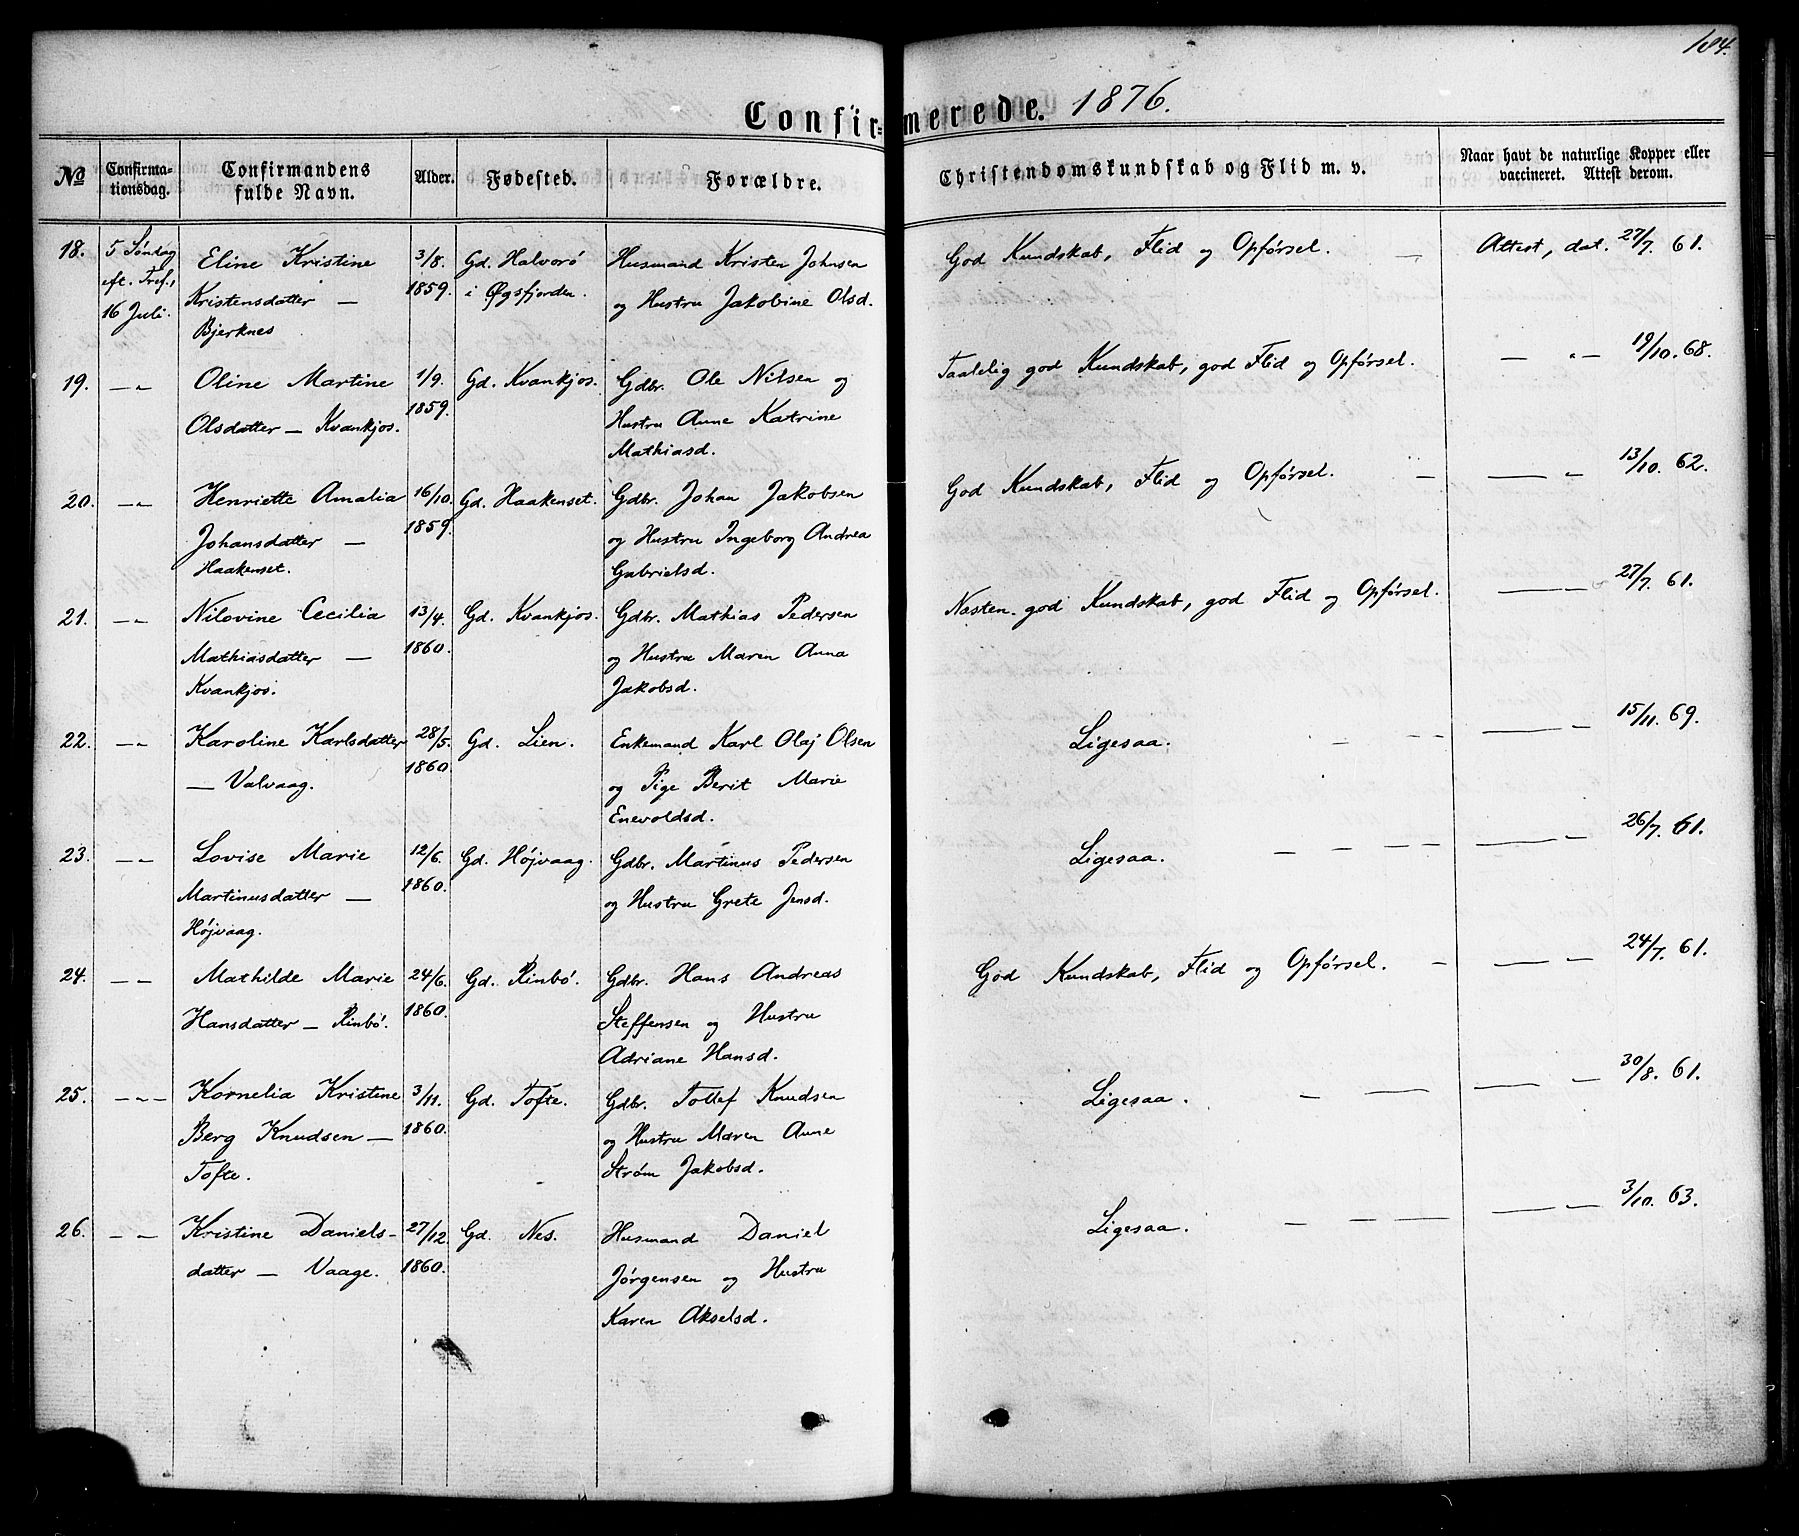 184.
Confirmerede. 1876.
No Confirmationsdag. Confirmandens fulde Navn. Alder. Fødested. Forældre. Christendomskundskab og Flid m. v. Naar havt de naturlige Kopper eller vaccineret. Attest derom.
18. 5 Søndag Eline Kristine 3/8. Gd. Halvorö Husmand Kristen Johnsen God Kundskab, Flid og Opførsel. — Attest, dat. 27/7. 61.
eft. Tref., Kristensdatter — 1859. i Øgsfjorden. og Hustru Jakobine Olsd.
16 Juli. Bjerknes
19. — „ Oline Martine 1/9. Gd. Kvankjos. Gdbr. Ole Nilsen og Taalelig god Kundskab, god Flid og Opførsel. — „ — 19/10. 68.
Olsdatter — Kvankjos. 1859. Hustru Anne Katrine
Mathiasd.
20. — „ Henriette Amalia 16/10. Gd. Haakenset. Gdbr. Johan Jakobsen God Kundskab, Flid og Opførsel. — — „ 13/10. 62.
Johansdatter — 1859. og Hustru Ingeborg Andrea
Haakenset. Gabrielsd.
21. — „ Nilovine Cecilia 13/4. Gd. Kvankjos. Gdbr. Mathias Pedersen Næsten god Kundskab, god Flid og Opførsel. — — 27/7. 61.
Mathiasdatter — 1860. og Hustru Maren Anna
Kvankjos. Jakobsd.
22. — „ Karoline Karlsdatter 28/5. Gd. Lien. Enkemand Karl Olaj Olsen Ligesaa. — — — — — 15/11. 69.
— Valvaag. 1860. og Pige Berit Marie
Enevoldsd.
23. — „ Lovise Marie 12/6. Gd. Højvaag. Gdbr. Martinus Pedersen Ligesaa. — — — — — — 26/7. 61.
Martinusdatter — 1860. og Hustru Grete Jensd.
Højvaag.
24. — — Mathilde Marie 24/6. Gd. Rinbö. Gdbr. Hans Andreas God Kundskab, Flid og Opførsel. — — — 24/7. 61.
Hansdatter — Rinbö. 1860. Steffensen og Hustru
Adriane Hansd.
25. — „ — Kornelia Kristine 3/11. Gd. Tofte. Gdbr. Tollef Knudsen Ligesaa. — — — — — 30/8. 61.
Berg Knudsen — 1860. og Hustru Maren Anne
Tofte. Strøm Jakobsd.
26. — — Kristine Daniels- 27/12. Gd. Nes. Husmand Daniel Ligesaa. — — — — — — 3/10. 63.
datter — Vaage. 1860. Jörgensen og Hustru
Karen Akselsd.